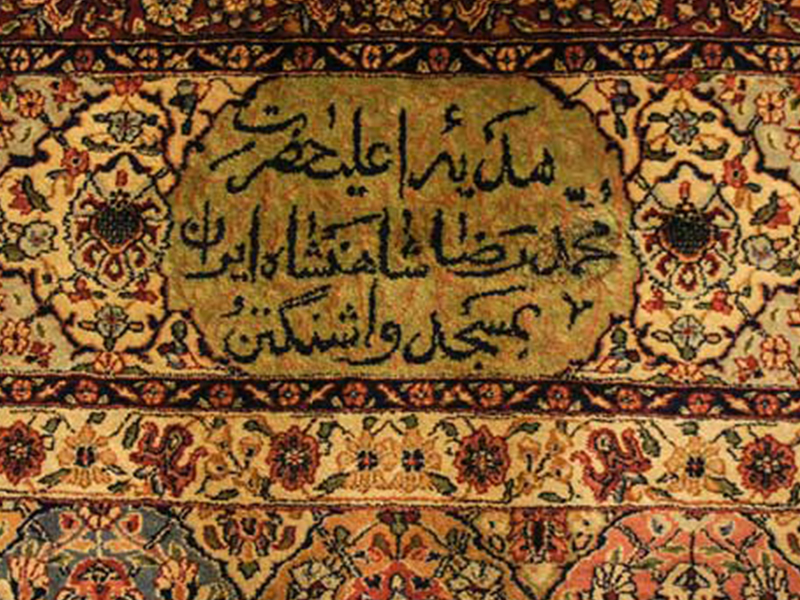 هدیهٔ اعلیٰحضرت
محمّد رضا شاهنشاه ایران
بمسجد واشنگتن